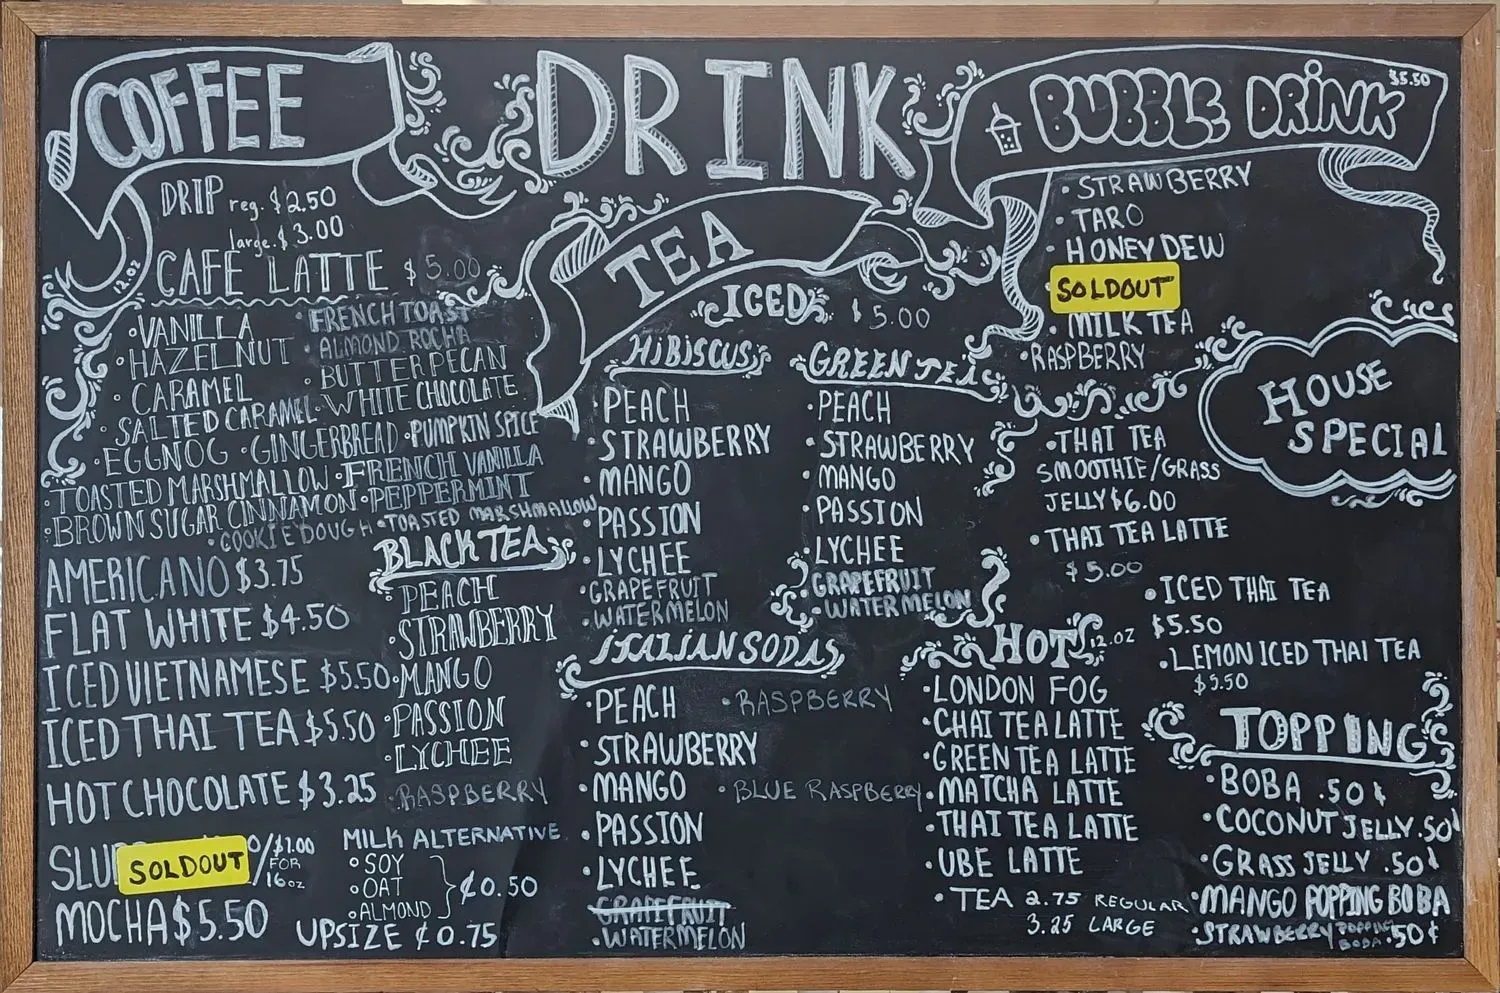 COFFEE
DRIP reg. $2.50
large. $3.00
12.oz
CAFE LATTE $5.00
•VANILLA
•HAZELNUT
•CARAMEL
•SALTED CARAMEL
•FRENCH TOAST
•ALMOND ROCHA
•BUTTER PECAN
•WHITE CHOCOLATE
•EGGNOG •GINGERBREAD •PUMPKIN SPICE
•TOASTED MARSHMALLOW •FRENCH VANILLA
•BROWN SUGAR CINNAMON •PEPPERMINT
•COOKIE DOUGH •TOASTED MARSHMALLOW
AMERICANO $3.75
FLAT WHITE $4.50
ICED VIETNAMESE $5.50
ICED THAI TEA $5.50
HOT CHOCOLATE $3.25
SOLDOUT /$1.00
FOR
16oz
MOCHA $5.50
MILK ALTERNATIVE
•SOY
•OAT
•ALMOND
¢0.50
UPSIZE ¢0.75
DRINK
TEA
ICED $5.00
BLACK TEA
•PEACH
•STRAWBERRY
•MANGO
•PASSION
•LYCHEE
•RASPBERRY
HIBISCUS
PEACH
•STRAWBERRY
•MANGO
•PASSION
•LYCHEE
•GRAPEFRUIT
•WATERMELON
GREEN TEA
•PEACH
•STRAWBERRY
•MANGO
•PASSION
•LYCHEE
GRAPEFRUIT
•WATERMELON
ITALIAN SODAS
•PEACH
•STRAWBERRY
•MANGO
•PASSION
•LYCHEE
GRAPEFRUIT
•WATERMELON
•RASPBERRY
•BLUE RASPBERRY
HOT 12.oz
•LONDON FOG
•CHAI TEA LATTE
•GREEN TEA LATTE
•MATCHA LATTE
•THAI TEA LATTE
•UBE LATTE
•TEA 2.75 REGULAR
3.25 LARGE
BUBBLE DRINK $5.50
•STRAWBERRY
•TARO
•HONEYDEW
SOLDOUT
•MILK TEA
•RASPBERRY
HOUSE
SPECIAL
•THAI TEA
SMOOTHIE/GRASS
JELLY $6.00
•THAI TEA LATTE
$5.00
•ICED THAI TEA
$5.50
•LEMON ICED THAI TEA
$5.50
TOPPING
•BOBA .50¢
•COCONUT JELLY .50¢
•GRASS JELLY .50¢
•MANGO POPPING BOBA
•STRAWBERRY POPPING BOBA .50¢